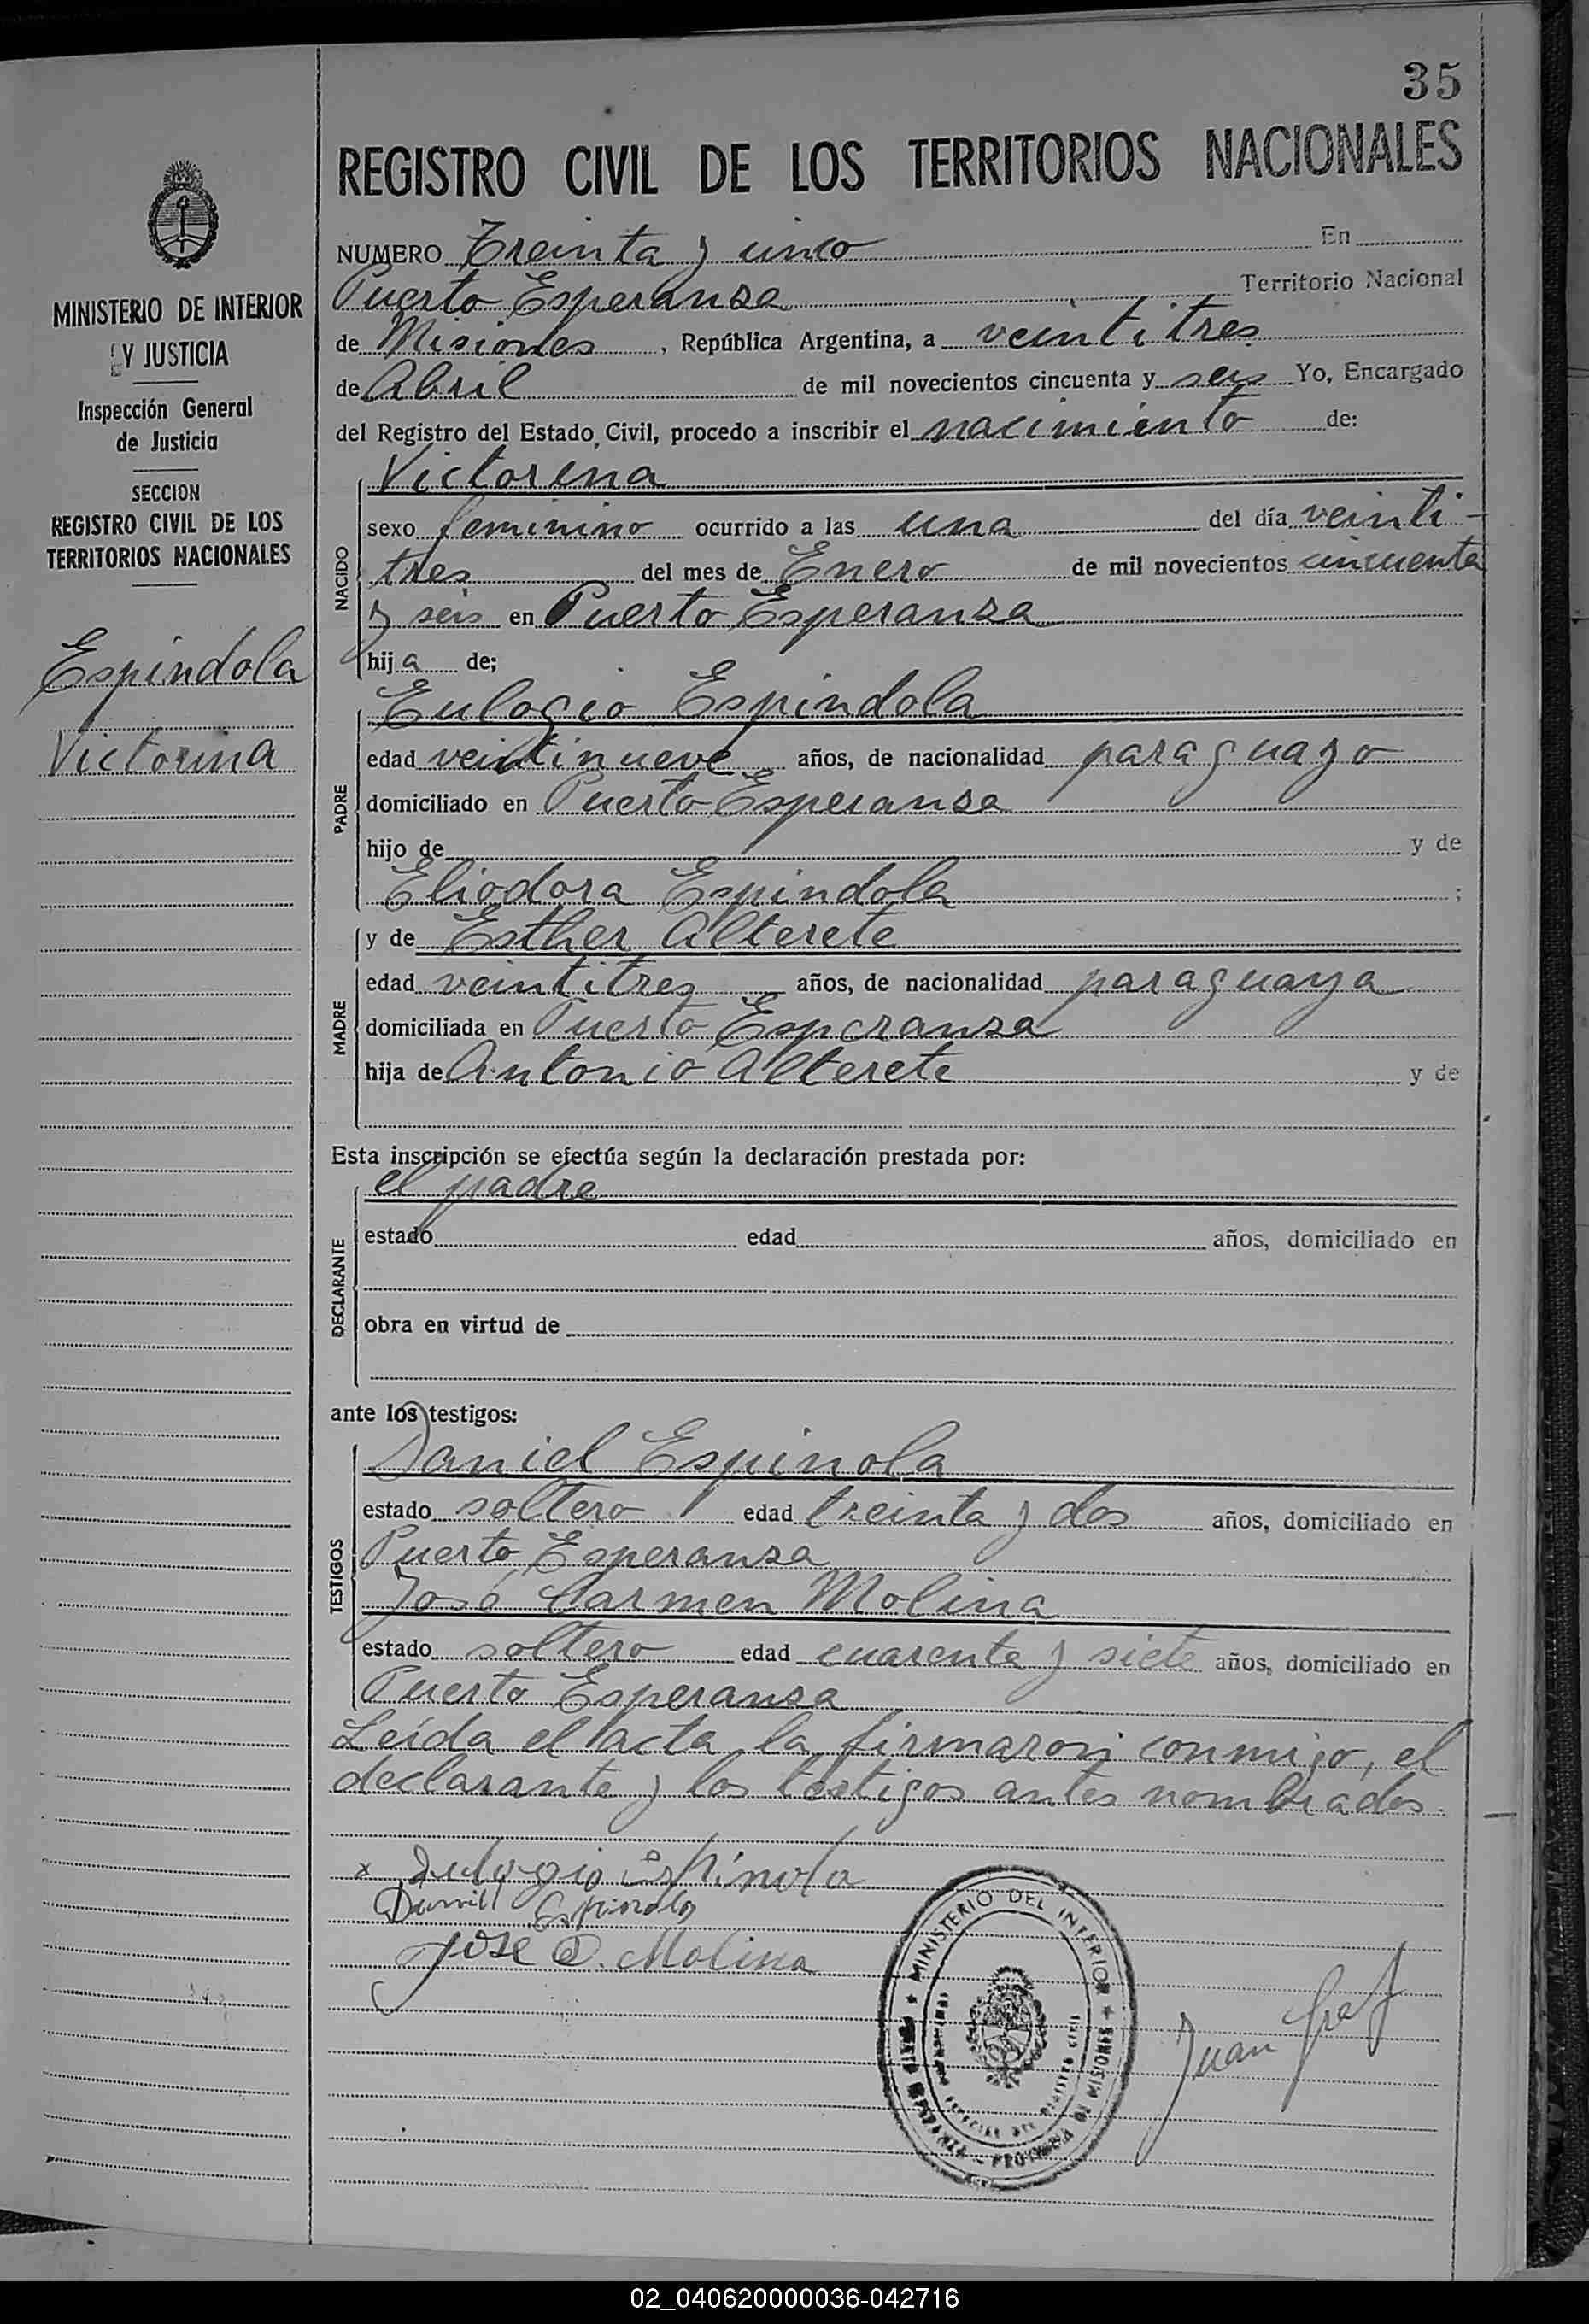 35
REGISTRO CIVIL DE LOS TERRITORIOS NACIONALES
NUMERO Treinta y cinco En
Puerto Esperanza Territorio Nacional
de Misiones, República Argentina, a veintitres
de Abril de mil novecientos cincuenta y seis Yo, Encargado
del Registro del Estado Civil, procedo a inscribir el nacimiento de:
Victorina
sexo femenino ocurrido a las una del día veinti-
tres del mes de Enero de mil novecientos cincuenta
y seis en Puerto Esperanza
hija de;
NACIDO
Eulogio Espindola
edad veintinueve años, de nacionalidad paraguayo
domiciliado en Puerto Esperanza
hijo de y de
Eliodora Espindola ;
PADRE
y de Esther Alterete
edad veintitres años, de nacionalidad paraguaya
domiciliada en Puerto Esperanza
hija de Antonio Alterete y de
MADRE
Esta inscripción se efectúa según la declaración prestada por:
el padre
estado edad años, domiciliado en
obra en virtud de
DECLARANTE
ante los testigos:
Daniel Espinola
estado soltero edad treinta y dos años, domiciliado en
Puerto Esperanza
José Carmen Molina
estado soltero edad cuarenta y siete años, domiciliado en
Puerto Esperanza
TESTIGOS
Leída el acta la firmaron conmigo, el
declarante y los testigos antes nombrados.
x Eulogio Espínola
Daniel Espinola
Jose C. Molina
MINISTERIO DEL INTERIOR
PROVINCIA DE MISIONES
Juan
MINISTERIO DE INTERIOR
Y JUSTICIA
Inspección General
de Justicia
SECCION
REGISTRO CIVIL DE LOS
TERRITORIOS NACIONALES
Espindola
Victorina
02_040620000036-042716